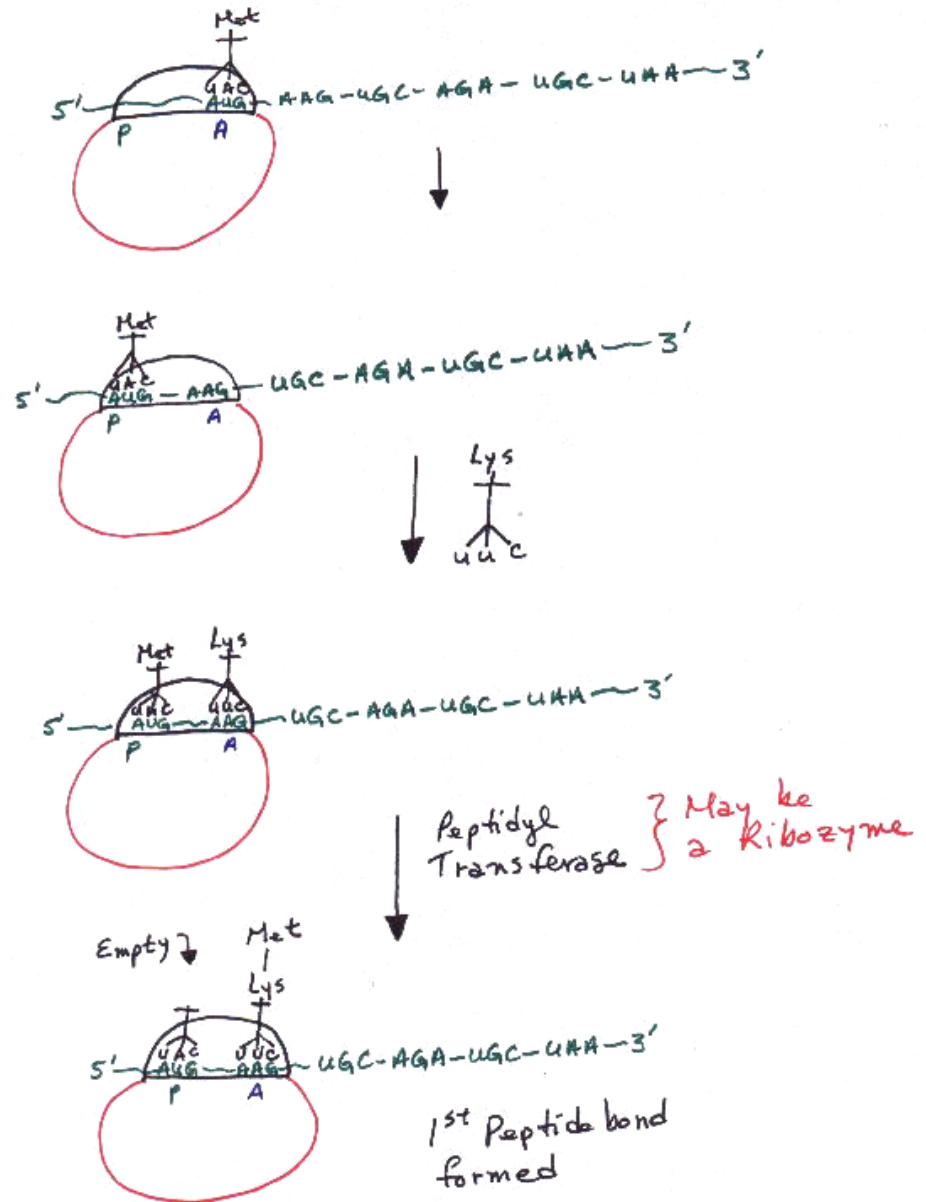 Met
UAC
5' AUG - AAG - UGC - AGA - UGC - UAA 3'
P A
Met
UAC
5' AUG - AAG - UGC - AGA - UGC - UAA 3'
P A
Lys
U U C
Met Lys
UAC UUC
5' AUG AAG - UGC - AGA - UGC - UAA 3'
P A
Peptidyl
Transferase } May be
a Ribozyme
Empty Met
Lys
UAC UUC
5' AUG AAG - UGC - AGA - UGC - UAA - 3'
P A
1st Peptide bond
formed